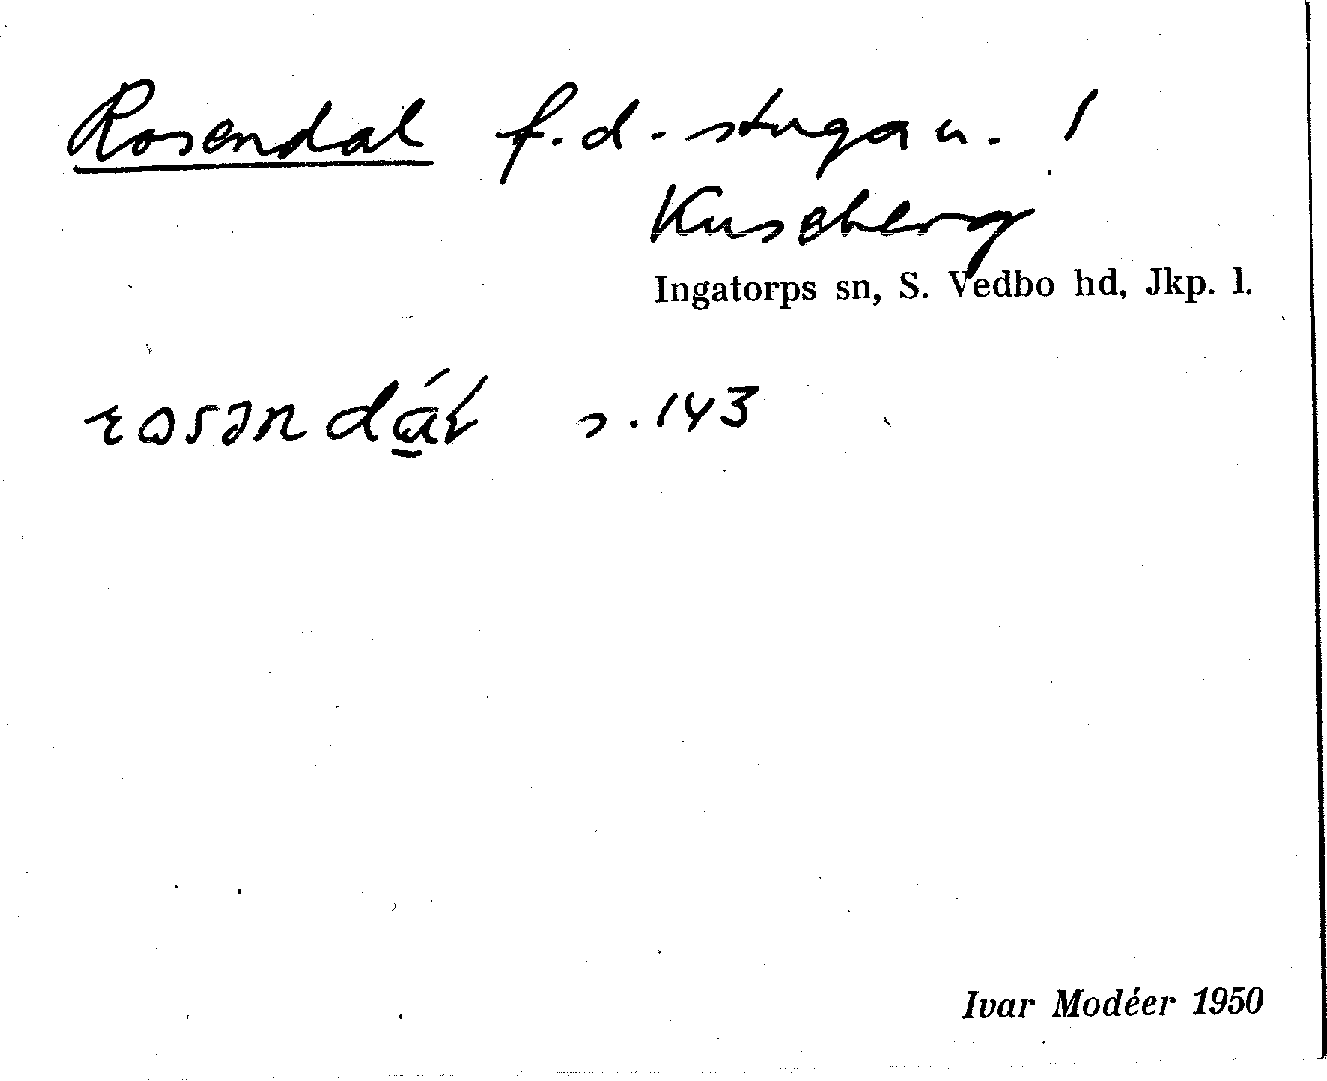 Rosendal f.d. stuga u. 1
Kuseberg
Ingatorps sn, S. Vedbo hd, Jkp. l.
rosəndáɫ s. 143
Ivar Modéer 1950